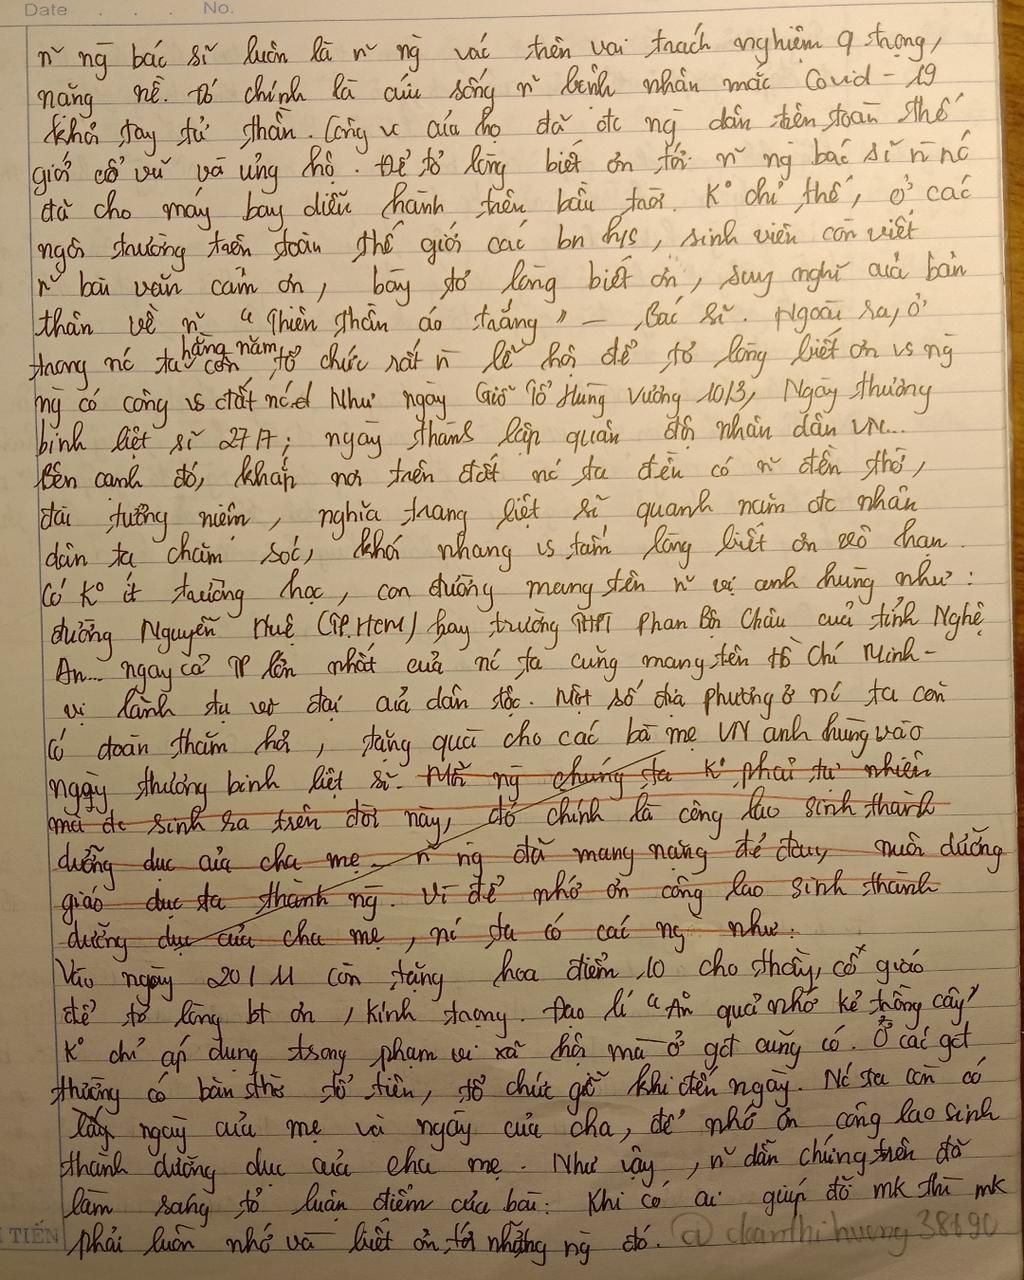 Date . . . No.
n~ ng bác sĩ luôn là n~ ng vác trên vai trách nghiệm q trọng,
nặng nề. Đó chính là cứu sống n~ bệnh nhân mắc Covid - 19
khỏi tay tử thần. Công vc của họ đã đc ng dân trên toàn thế
giới cổ vũ và ủng hộ. Để tỏ lòng biết ơn tới n~ ng bác sĩ n` nc
đã cho máy bay diễu hành trên bầu trời. K° chỉ thế, ở các
ngôi trường trên toàn thế giới các bn hs, sinh viên còn viết
n~ bài văn cảm ơn, bày tỏ lòng biết ơn, suy nghĩ của bản
thân về n~ "Thiên thần áo trắng" - Bác sĩ. Ngoài ra, ở
trong nc ta còn hằng năm tổ chức rất n` lễ hội để tỏ lòng biết ơn vs ng
ng có công vs đất nc Như ngày Giỗ Tổ Hùng Vương 10/3, Ngày thương
binh liệt sĩ 27/7; ngày thành lập quân đội nhân dân VN...
Bên cạnh đó, khắp nơi trên đất nc ta đều có n~ đền thờ,
đài tưởng niệm, nghĩa trang liệt sĩ quanh năm đc nhân
dân ta chăm sóc, khói nhang vs tấm lòng biết ơn vô hạn.
Có K° ít trường học, con đường mang tên n~ vị anh hùng như:
đường Nguyễn Huệ (TP.HCM) hay trường THPT Phan Bội Châu của tỉnh Nghệ
An... ngay cả TP lớn nhất của nc ta cũng mang tên Hồ Chí Minh -
vị lãnh tụ vĩ đại của dân tộc. Một số địa phương ở nc ta còn
có đoàn thăm hỏi, tặng quà cho các bà mẹ VN anh hùng vào
ngày thương binh liệt sĩ. Mỗi ng chúng ta K° phải tự nhiên
mà đc sinh ra trên đời này, đó chính là công lao sinh thành
dưỡng dục của cha mẹ - n~ ng đã mang nặng đẻ đau, nuôi dưỡng
giáo dục ta thành ng. Vì để nhớ ơn công lao sinh thành
dưỡng dục của cha mẹ, nc ta có các ng như:
Vào ngày 20/11 còn tặng hoa điểm 10 cho thầy, cô giáo
để tỏ lòng bt ơn, kính trọng. Đạo lí "Ăn quả nhớ kẻ trồng cây"
K° chỉ áp dụng trong phạm vi xã hội mà ở gđ cũng có. Ở các gđ
thường có bàn thờ tổ tiên, tổ chức giỗ khi đến ngày. Nc ta còn có
lấy ngày của mẹ và ngày của cha, để nhớ ơn công lao sinh
thành dưỡng dục của cha mẹ. Như vậy, n~ dẫn chứng trên đã
làm sáng tỏ luận điểm của bài: Khi có ai giúp đỡ mk thì mk
phải luôn nhớ và biết ơn tới những ng đó. @doanthihuong38190
TIẾN